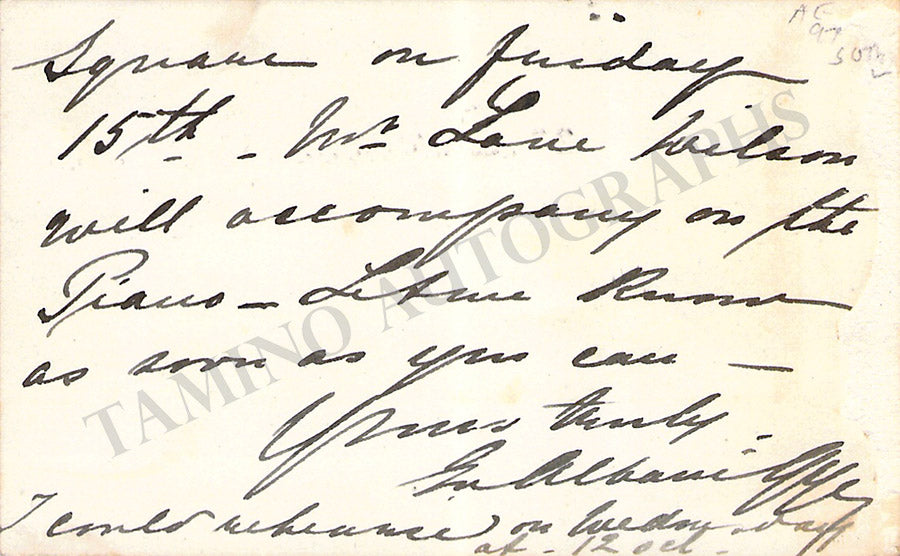 Square on Friday
15th - Mr. Lane Wilson
will accompany on the
Piano - Let me know
as soon as you can -
Yours truly.
Em Albani Gye
I could rehearse on Wednesday
at - 12 ocl.
TAMINO AUTOGRAPHS